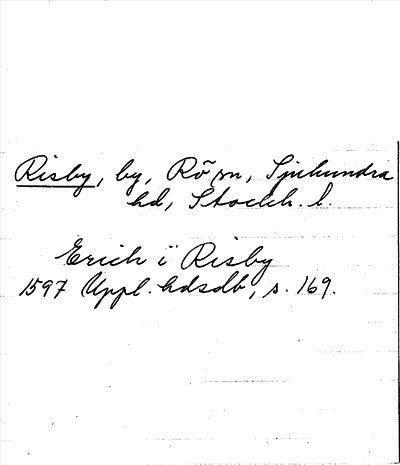 Risby, by, Rö sn, Sjuhundra
hd, Stockh. l.
Erich i Risby
1597 Uppl. hdsdb, s. 169.